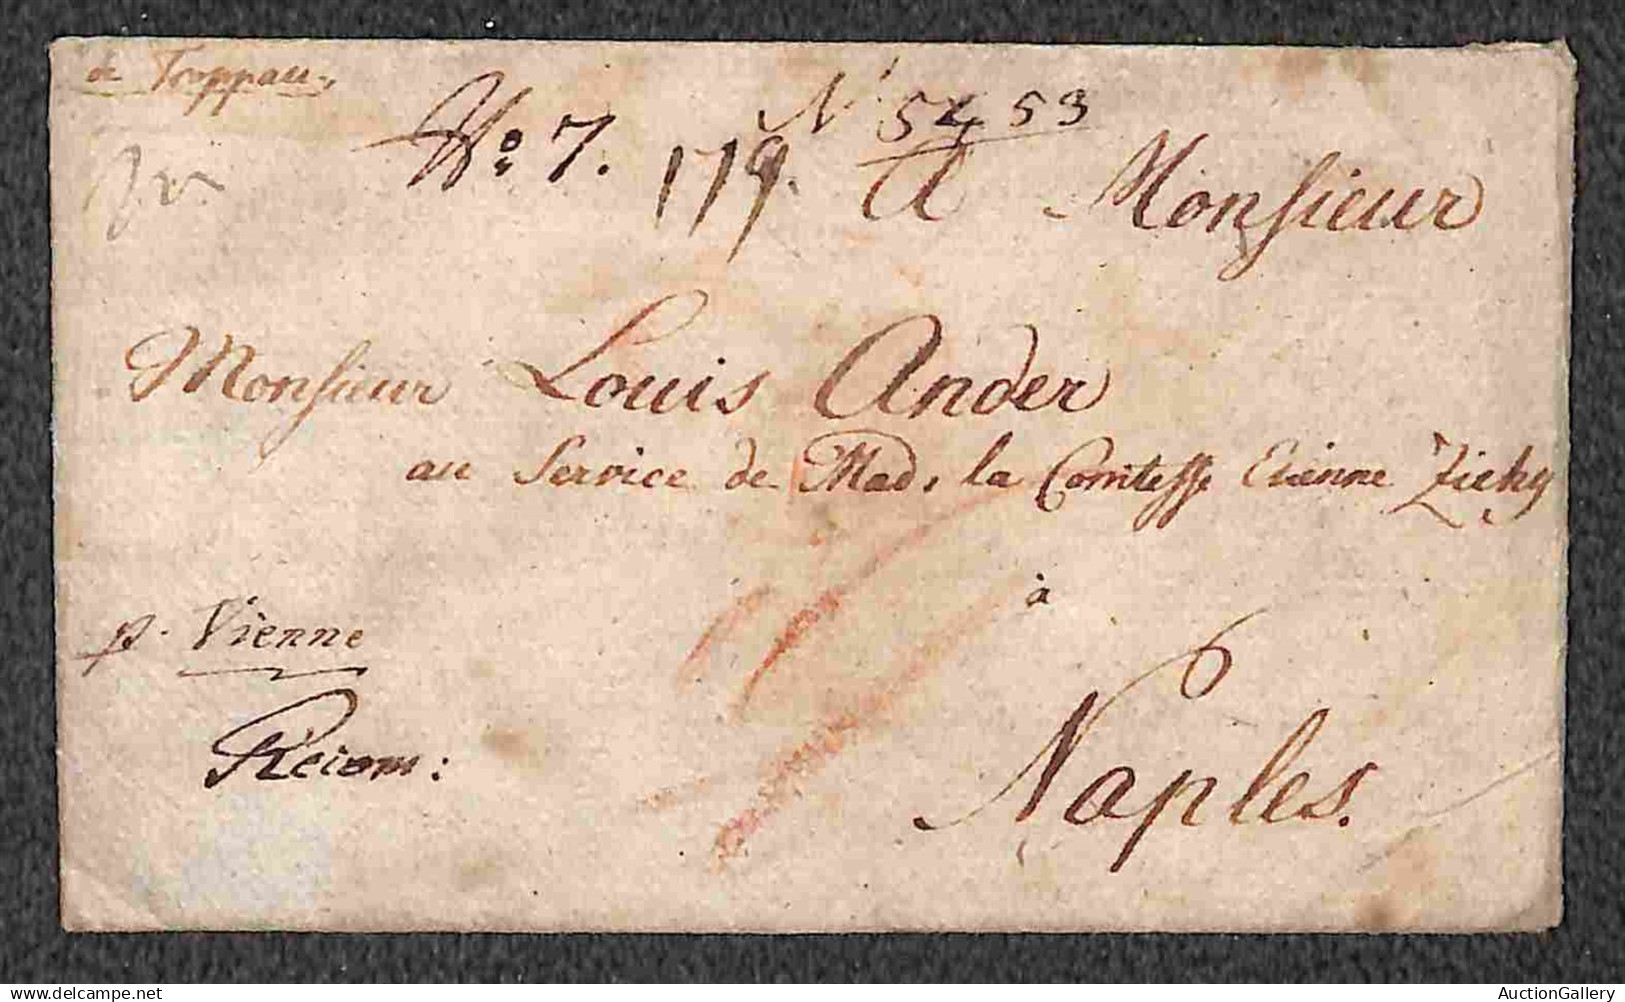 de Troppau.
No: 7. 119. N° 5453
A Monsieur
Monsieur Louis Ander
au Service de Mad. la Comtesse Etienne Zichy
à
p. Vienne
Naples.
Recom:
AuctionGallery
AuctionGallery